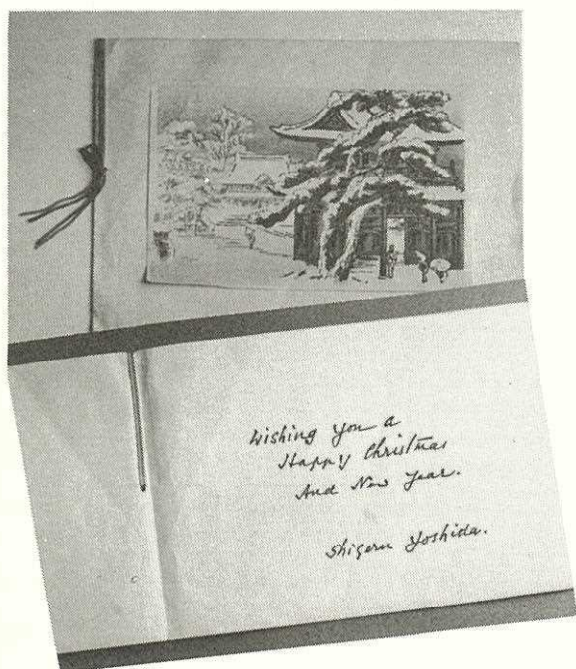 Wishing you a
Happy Christmas
And New Year.
Shigeru Yoshida.